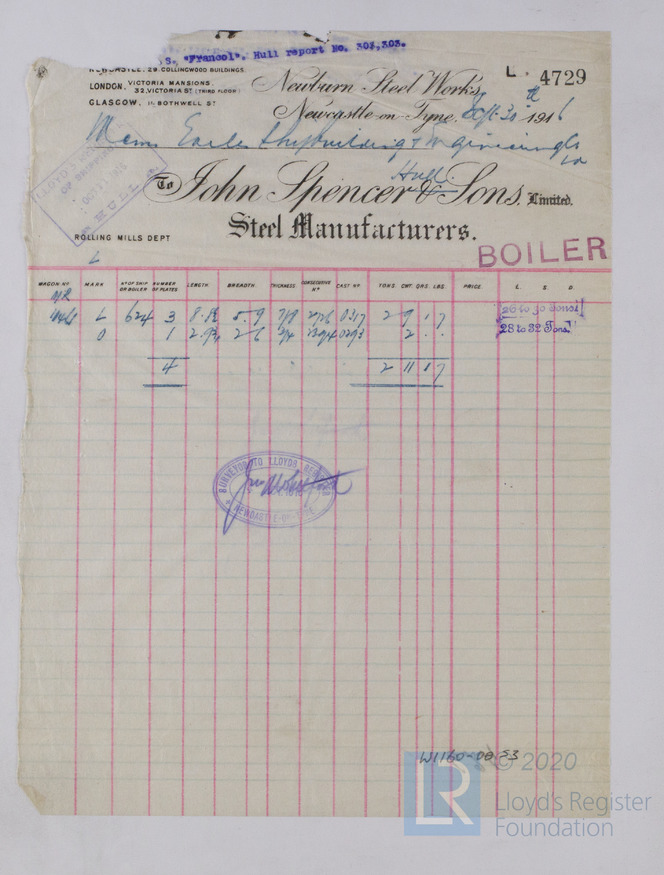 S. "Francol". Hull report No. 303,303.
NEWCASTLE. 29 COLLINGWOOD BUILDINGS.
LONDON. VICTORIA MANSIONS. 32, VICTORIA ST (THIRD FLOOR)
GLASGOW, 11, BOTHWELL ST
L. 4729
Newburn Steel Works,
Newcastle-on-Tyne, Sept 30th 1916
Messrs Earles Shipbuilding & Engineering Co Ld
Hull.
To John Spencer & Sons, Limited.
Steel Manufacturers.
ROLLING MILLS DEPT
BOILER
L
WAGON NO MARK NO OF SHIP OR BOILER NUMBER OF PLATES LENGTH. BREADTH. THICKNESS. CONSECUTIVE NO CAST NO TONS. CWT. QRS. LBS. PRICE. L. S. D.
L 624 3 5.9 7/8 0317 2 9 1 7
26 to 30 Tons
O 1 2.6 3/4 0293 2 . .
28 to 32 Tons.
4 2 11 1 7
SURVEYOR TO LLOYDS REGISTER
NEWCASTLE-ON-TYNE
W1160-0053
© 2020
LR
Lloyd's Register
Foundation